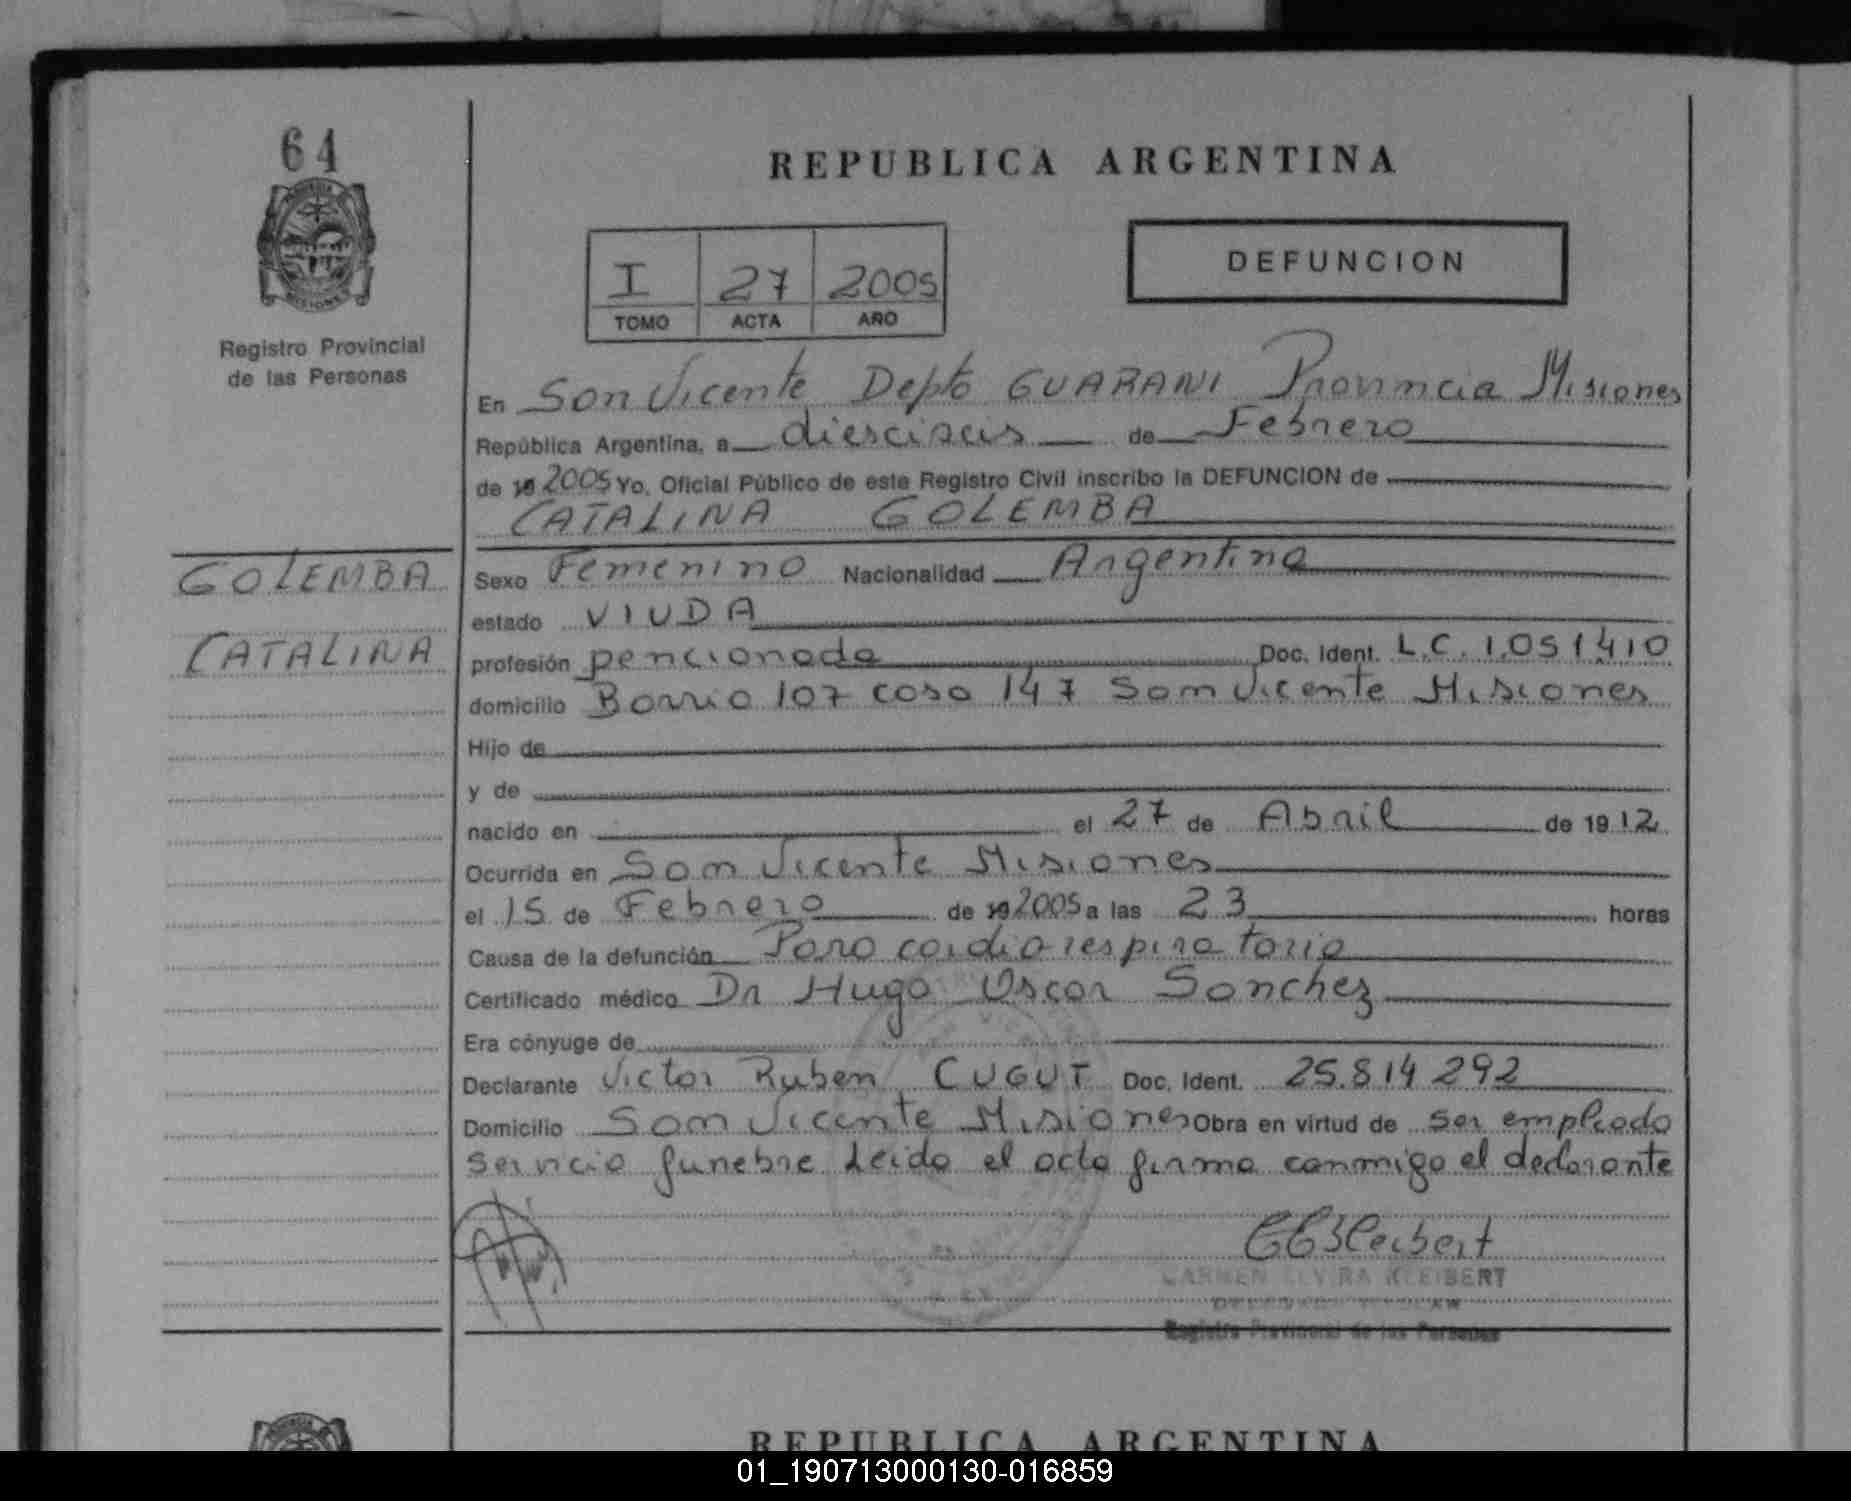 64
REPUBLICA ARGENTINA
I 27 2005
TOMO ACTA AÑO
DEFUNCION
Registro Provincial
de las Personas
En San Vicente Depto GUARANI Provincia Misiones
República Argentina, a diesciseis de Febrero
de 19 2005 Yo, Oficial Público de este Registro Civil inscribo la DEFUNCION de
CATALINA GOLEMBA
GOLEMBA
CATALINA
Sexo Femenino Nacionalidad Argentina
estado VIUDA
profesión pencionada Doc. Ident. L.C. 1.051410
domicilio Barrio 107 casa 147 San Vicente Misiones
Hijo de
y de
nacido en el 27 de Abril de 1912
Ocurrida en San Vicente Misiones
el 15 de Febrero de 19 2005 a las 23 horas
Causa de la defunción Paro cardiorespiratorio
Certificado médico Dr Hugo Oscar Sanchez
Era cónyuge de
Declarante Victor Ruben CUGUT Doc. Ident. 25.814 292
Domicilio San Vicente Misiones Obra en virtud de ser empleado
servicio funebre Leida el acta firma conmigo el declarante
CARMEN ELVIRA KLEIBERT
Registro Provincial de las Personas
REPUBLICA ARGENTINA
01_190713000130-016859